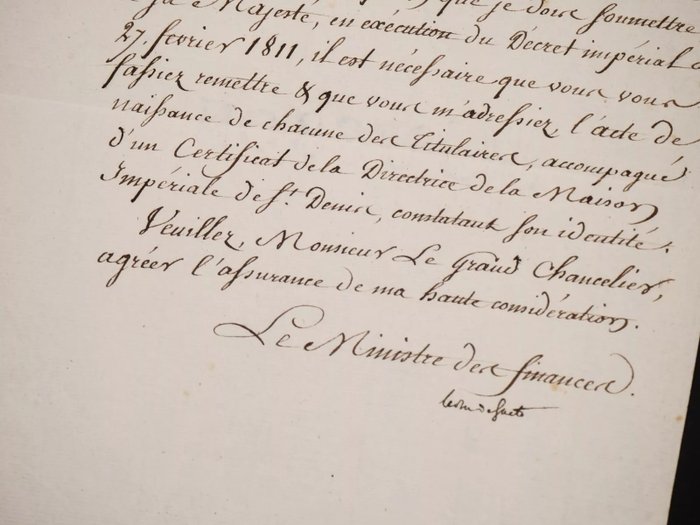 Sa Majesté, en exécution du Décret impérial d
27. fevrier 1811, il est nécessaire que vous vous
fassiez remettre & que vous m'adressiez, l'acte de
naissance de chacune des Titulaires, accompagné
d'un Certificat de la Directrice de la Maison
Impériale de St. Denis, constatant son identité.
Veuillez, Monsieur Le Grand Chancelier,
agréer l'assurance de ma haute considération.
Le Ministre des finances.